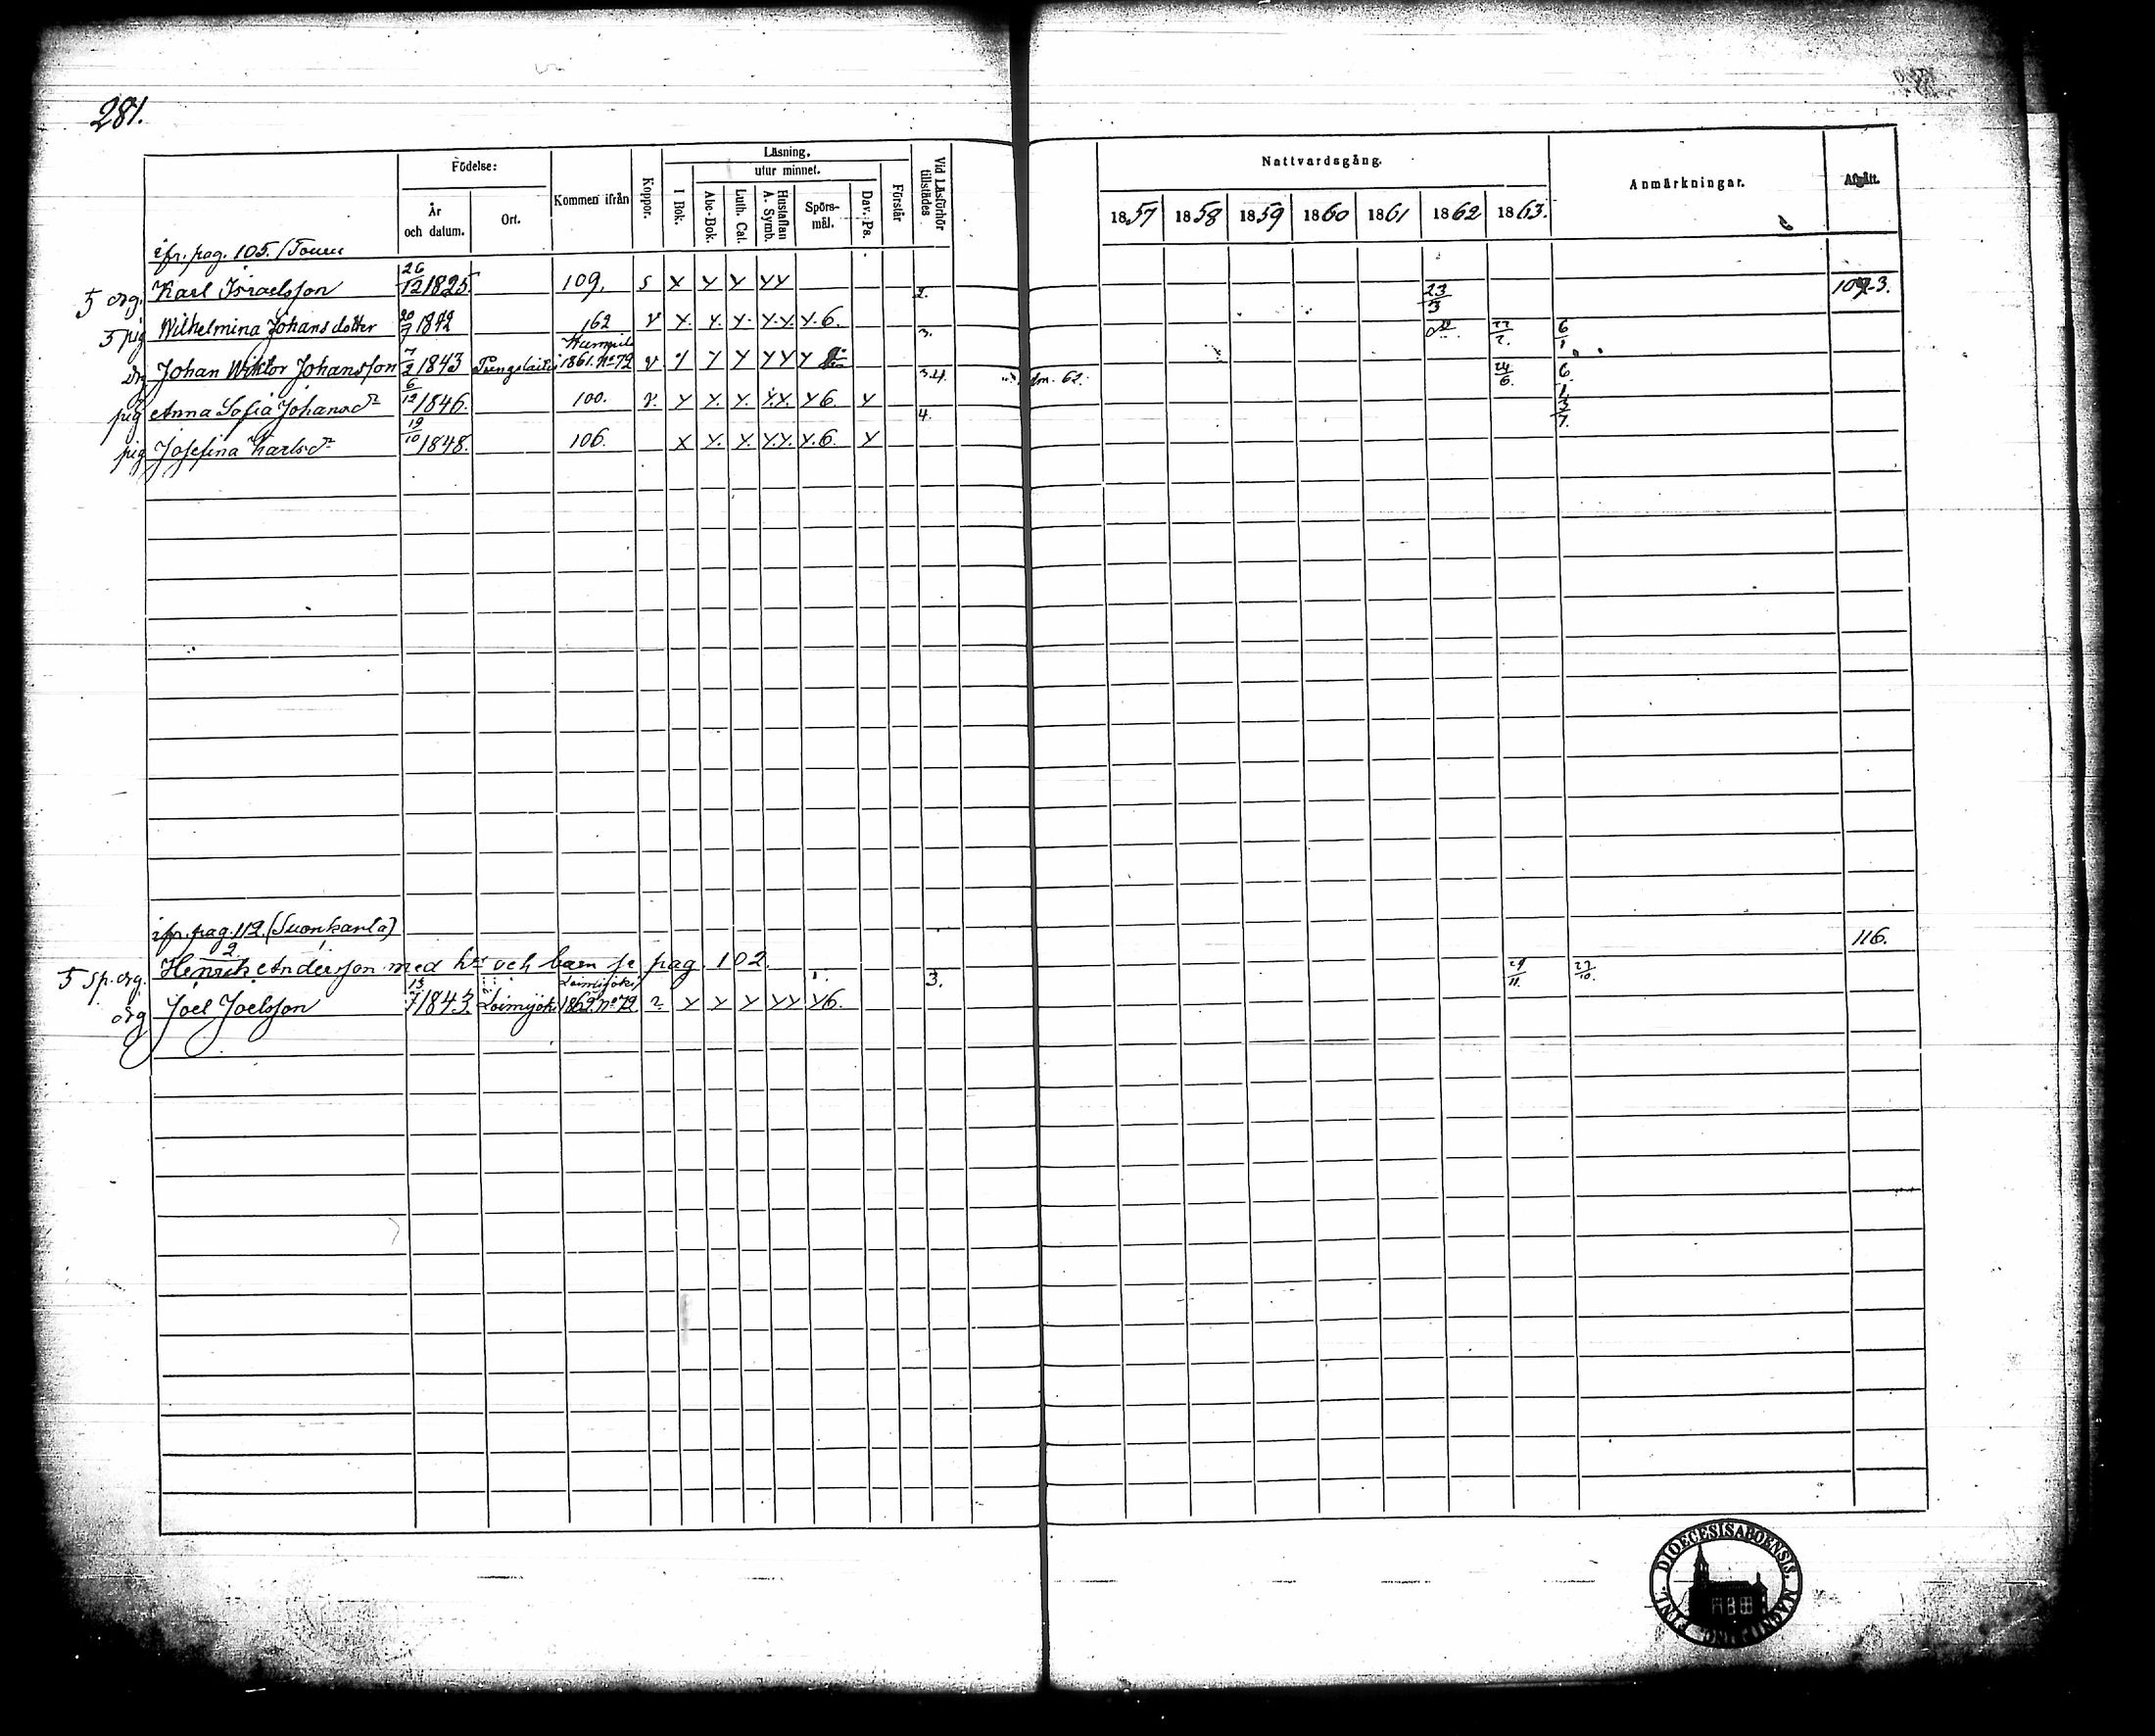 281.
Födelse: Kommen ifrån Koppor. Läsning. Vid Läsförhör tillstädes Nattvardsgång. Anmärkningar. Afgått.
År och datum. Ort. I Bok. utur minnet. Förstår
Abc-Bok. Luth. Cat. Hustaflan A. Symb. Spörsmål. Dav. Ps. 1857 1858 1859 1860 1861 1862 1863.
ifr. pag. 105.
5 drg. Karl Israelsson 26/12 1825 109. s x y y y y 2. 23/3
5 pig Wilhelmina Johansdotter 20/7 1842 162 v y. y. y. y. y. y. 6. 3. 22/2. 6
drg Johan Wiktor Johansson 7/2 1843 1861. No 72 v y y y y y 3.4. 62. 24/6. 6
pig Anna Sofia Johansdr 6/12 1846. 100. v. y y. y. y. y. y 6. y 4. 3/7.
pig Josefina Karlsdr 19/10 1848. 106. x y. y. y. y. y. 6. y
ifr. pag. 112. (Suonkanta)
5 sp. drg. Henrik Andersson med hu och barn se pag. 102. 116.
drg Joel Joelsson 13/7 1843. Loimijoki Loimijoki 1862. No 72. v. y y y y y y 6. 3. 29/11. 27/10.
SIGILL. DIOECESIS ABOENSIS. MAGNI PRINC